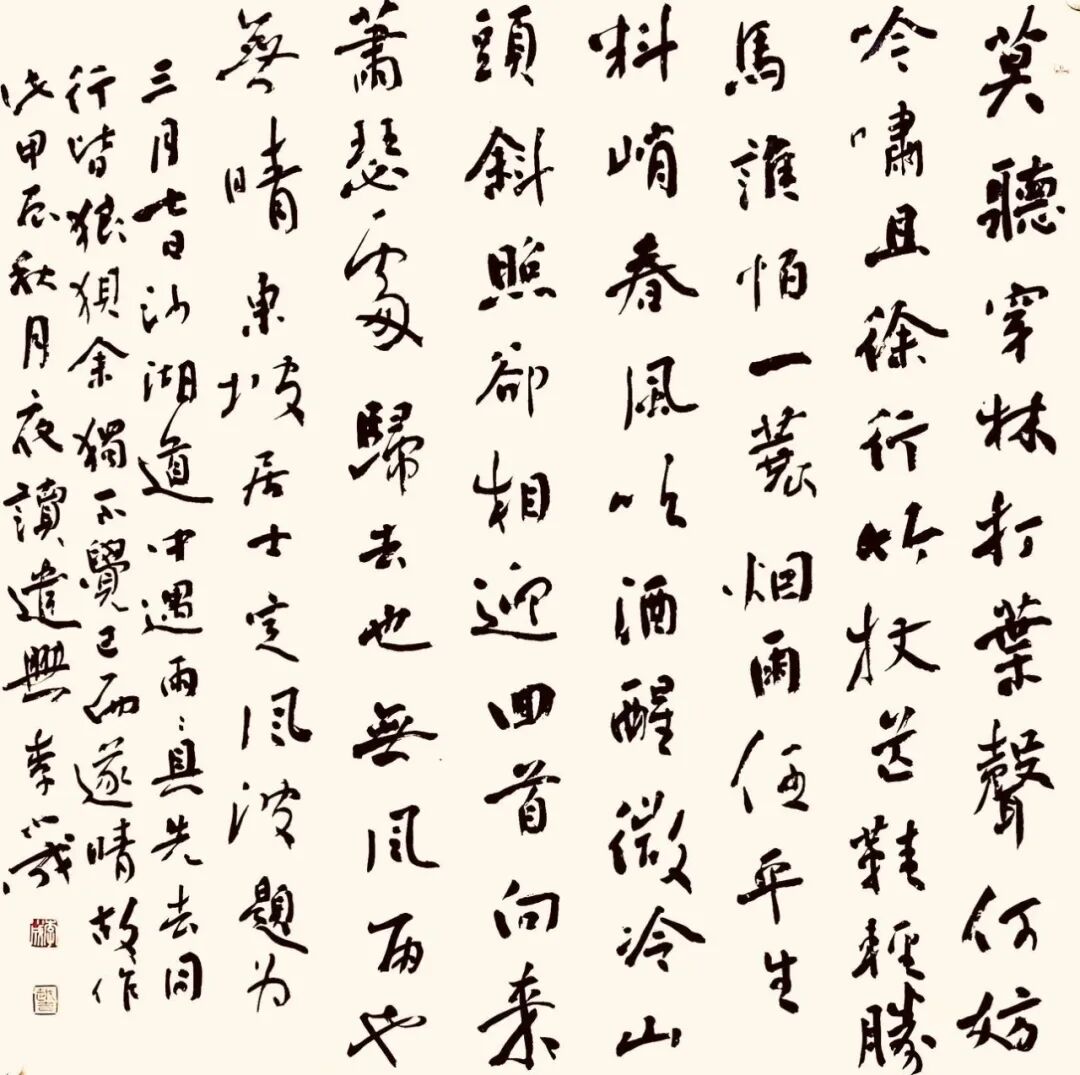 莫聽穿林打葉聲何妨
吟嘯且徐行竹杖芒鞋輕勝
馬誰怕一蓑烟雨任平生
料峭春風吹酒醒微冷山
頭斜照卻相迎回首向來
蕭瑟處歸去也無風雨也
無晴東坡居士定風波題为
三月七日沙湖道中遇雨〻具先去同
行皆狼狽余獨不覺已而遂晴故作
此甲辰秋月夜讀遣興李